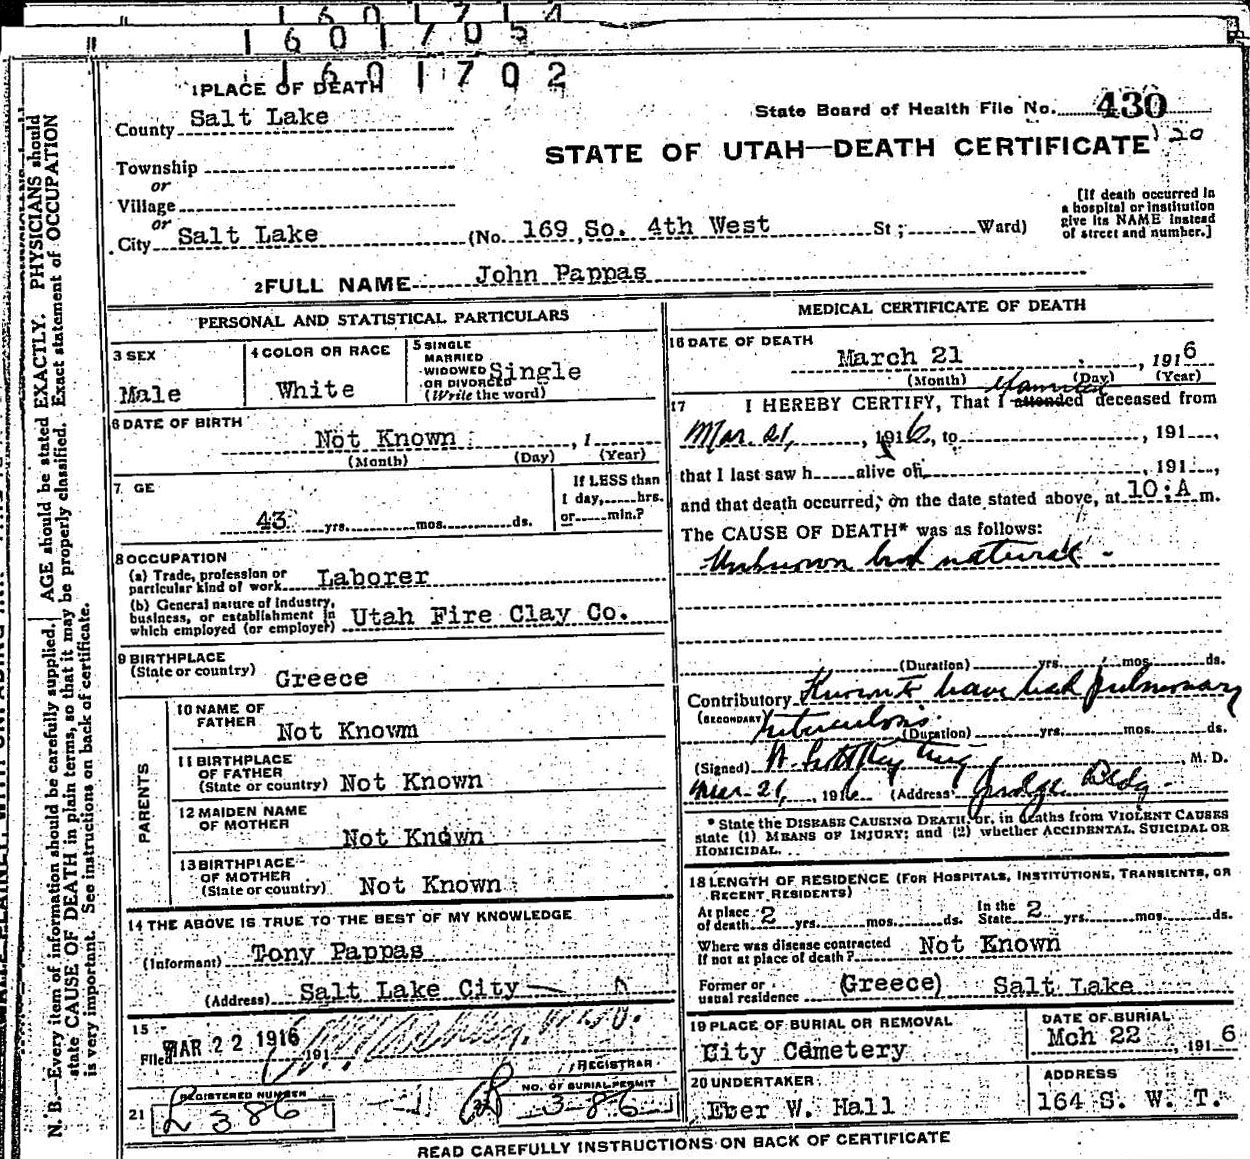 1 6 0 1 7 1 4
1 6 0 1 7 0 5
1 6 0 1 7 0 2
1 PLACE OF DEATH
County Salt Lake
State Board of Health File No. 430
120
STATE OF UTAH—DEATH CERTIFICATE
Township
or
Village
or
City Salt Lake (No. 169 So. 4th West St; Ward)
[If death occurred in
a hospital or institution
give its NAME instead
of street and number.]
2 FULL NAME John Pappas
PERSONAL AND STATISTICAL PARTICULARS
3 SEX
Male
4 COLOR OR RACE
White
5 SINGLE
MARRIED
WIDOWED
OR DIVORCED
(Write the word)
Single
6 DATE OF BIRTH
Not Known , 1
(Month) (Day) (Year)
7 GE
43 yrs. mos. ds.
If LESS than
1 day, hrs.
or min.?
8 OCCUPATION
(a) Trade, profession or
particular kind of work Laborer
(b) General nature of industry,
business, or establishment in
which employed (or employer) Utah Fire Clay Co.
9 BIRTHPLACE
(State or country) Greece
PARENTS
10 NAME OF
FATHER Not Known
11 BIRTHPLACE
OF FATHER
(State or country) Not Known
12 MAIDEN NAME
OF MOTHER
Not Known
13 BIRTHPLACE
OF MOTHER
(State or country) Not Known
14 THE ABOVE IS TRUE TO THE BEST OF MY KNOWLEDGE
(Informant) Tony Pappas
(Address) Salt Lake City
15
Filed MAR 22 1916 191
REGISTRAR
21 REGISTERED NUMBER
L 386
NO. OF BURIAL PERMIT
386
MEDICAL CERTIFICATE OF DEATH
16 DATE OF DEATH
March 21 , 1916
(Month) (Day) (Year)
17 I HEREBY CERTIFY, That I attended deceased from
Mar. 21, , 1916, to , 191 ,
that I last saw h alive on , 191 ,
and that death occurred, on the date stated above, at 10:A m.
The CAUSE OF DEATH* was as follows:
Unknown but natural.
(Duration) yrs. mos. ds.
Contributory Known to have had pulmonary
(SECONDARY) tuberculosis.
(Duration) yrs. mos. ds.
(Signed) , M. D.
Mar. 21, 1916 (Address) Judge Bldg.
* State the DISEASE CAUSING DEATH, or, in deaths from VIOLENT CAUSES
state (1) MEANS OF INJURY; and (2) whether ACCIDENTAL, SUICIDAL OR
HOMICIDAL.
18 LENGTH OF RESIDENCE (FOR HOSPITALS, INSTITUTIONS, TRANSIENTS, OR
RECENT RESIDENTS)
At place
of death 2 yrs. mos. ds.
In the
State 2 yrs. mos. ds.
Where was disease contracted
if not at place of death? Not Known
Former or
usual residence (Greece) Salt Lake
19 PLACE OF BURIAL OR REMOVAL
City Cemetery
DATE OF BURIAL
Mch 22 , 1916
20 UNDERTAKER
Eber W. Hall
ADDRESS
164 S. W. T.
READ CAREFULLY INSTRUCTIONS ON BACK OF CERTIFICATE
N. B.—Every item of information should be carefully supplied. AGE should be stated EXACTLY. PHYSICIANS should
state CAUSE OF DEATH in plain terms, so that it may be properly classified. Exact statement of OCCUPATION
is very important. See instructions on back of certificate.